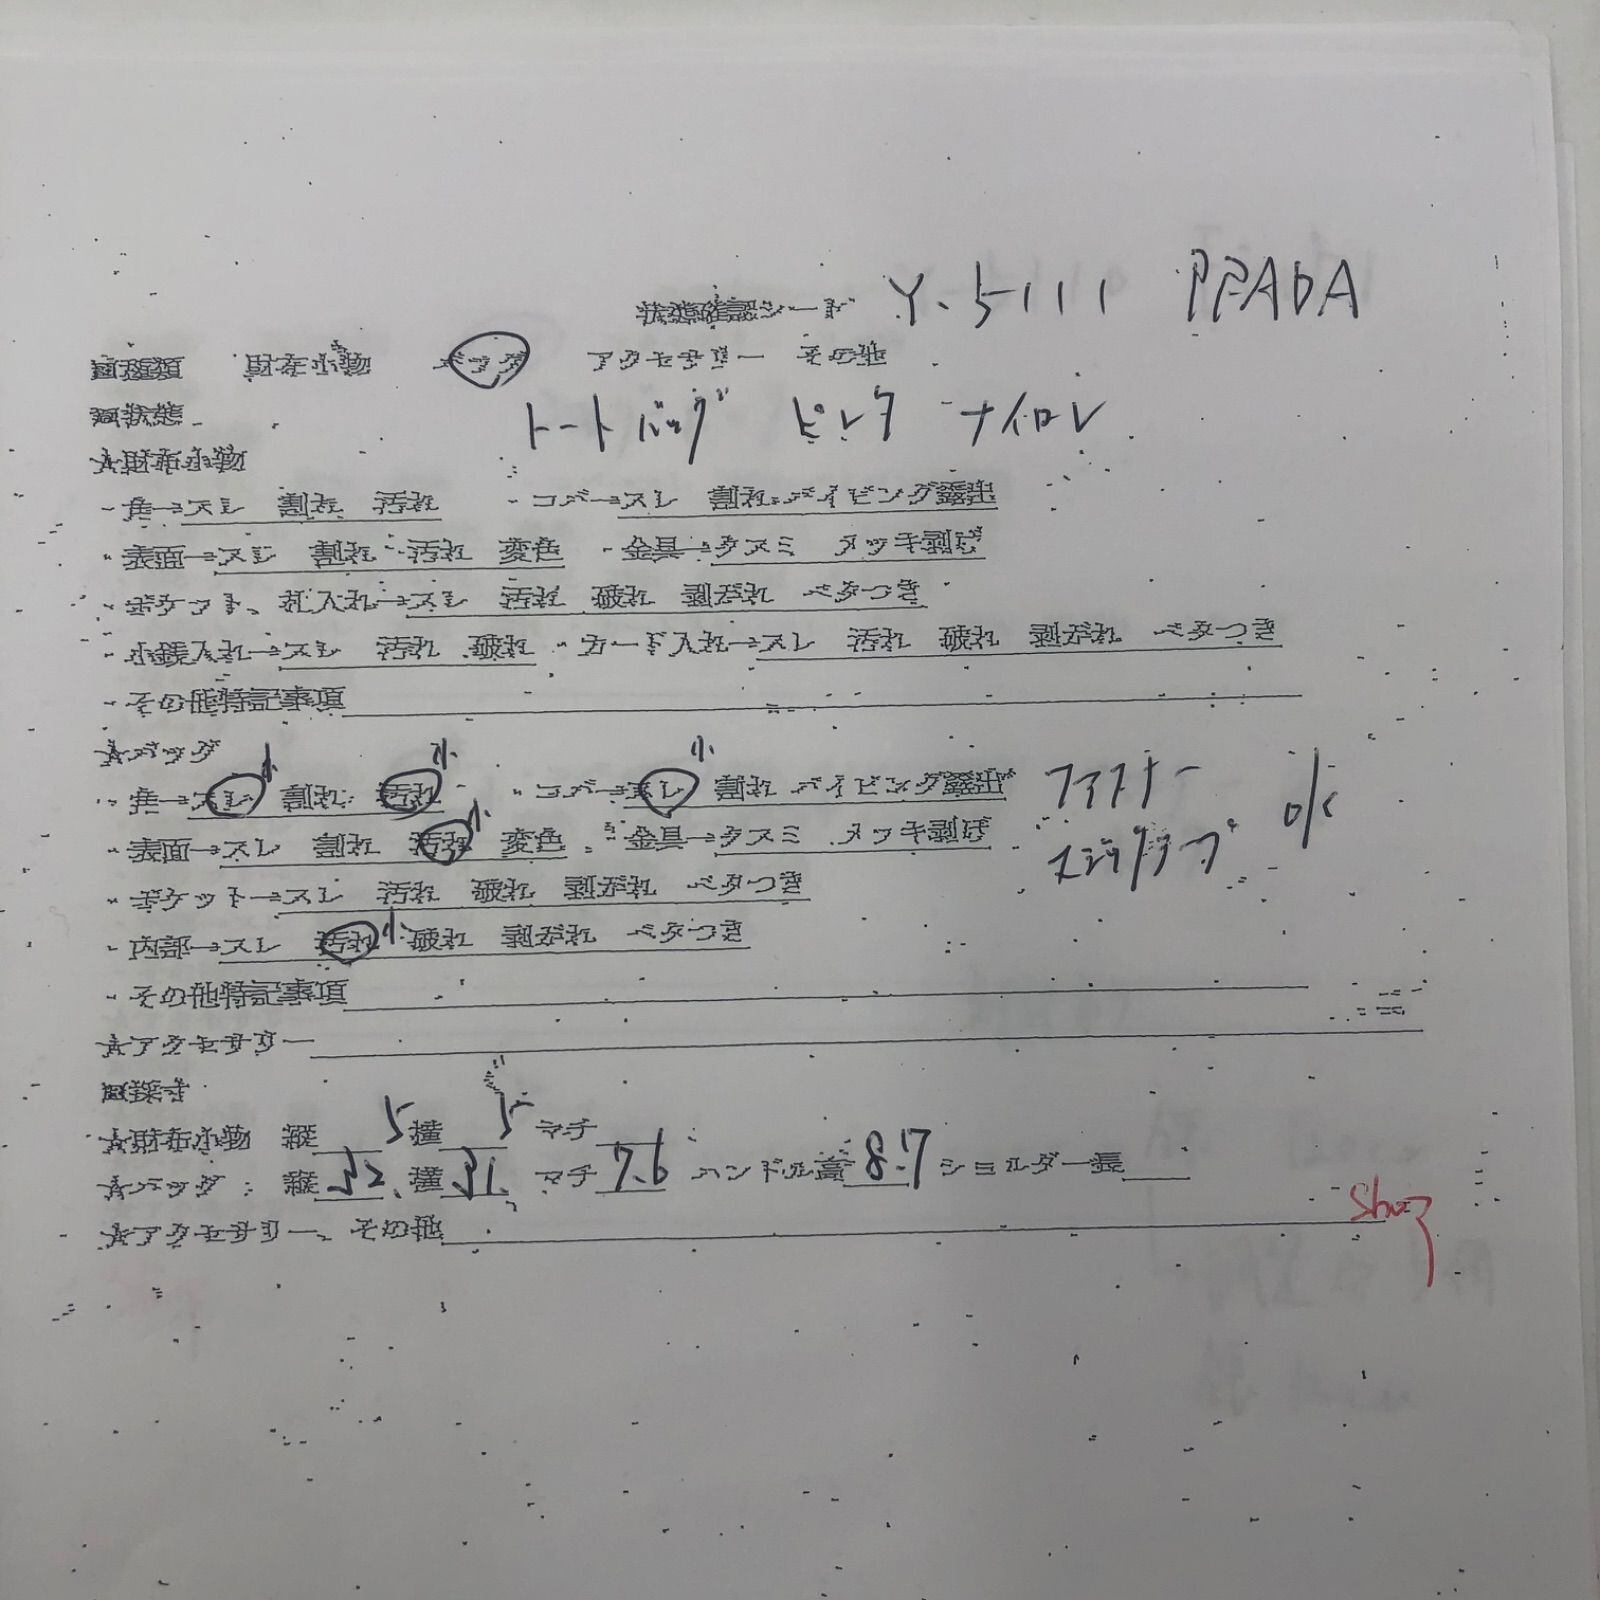 状態確認シート Y-5111 PRADA
■種類 財布小物 バッグ アクセサリー その他
■状態
トートバッグ ピンク ナイロン
★財布小物
・角→スレ 割れ 汚れ ・コバ→スレ 割れ パイピング露出
・表面→スレ 割れ 汚れ 変色 ・金具→クスミ メッキ剥げ
・ポケット、札入れ→スレ 汚れ 破れ 剥がれ ベタつき
・小銭入れ→スレ 汚れ 破れ ・カード入れ→スレ 汚れ 破れ 剥がれ ベタつき
・その他特記事項
★バッグ
小 小 小
・角→スレ 割れ 汚れ ・コバ→スレ 割れ パイピング露出 ファスナー
・表面→スレ 割れ 汚れ 小 変色 ・金具→クスミ メッキ剥げ OK
・ポケット→スレ 汚れ 破れ 剥がれ ベタつき
・内部→スレ 汚れ 小 破れ 剥がれ ベタつき
・その他特記事項
★アクセサリー
■採寸
★財布小物 縦 5 横 5 マチ
★バッグ : 縦 32 横 31 マチ 7.6 ハンドル高 8.7 ショルダー長
★アクセサリー、その他